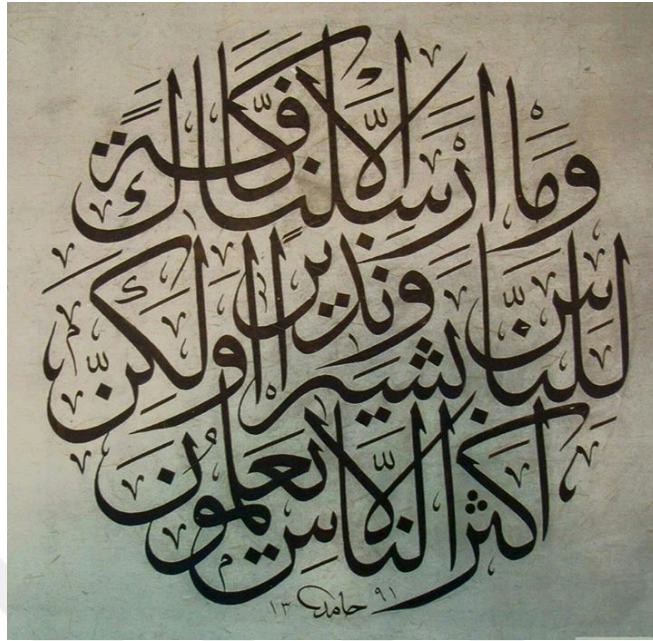 وَمَا أَرْسَلْنَاكَ إِلَّا كَافَّةً
لِلنَّاسِ بَشِيرًا وَنَذِيرًا وَلَكِنَّ
أَكْثَرَ النَّاسِ لَا يَعْلَمُونَ
حامد ١٣٩١